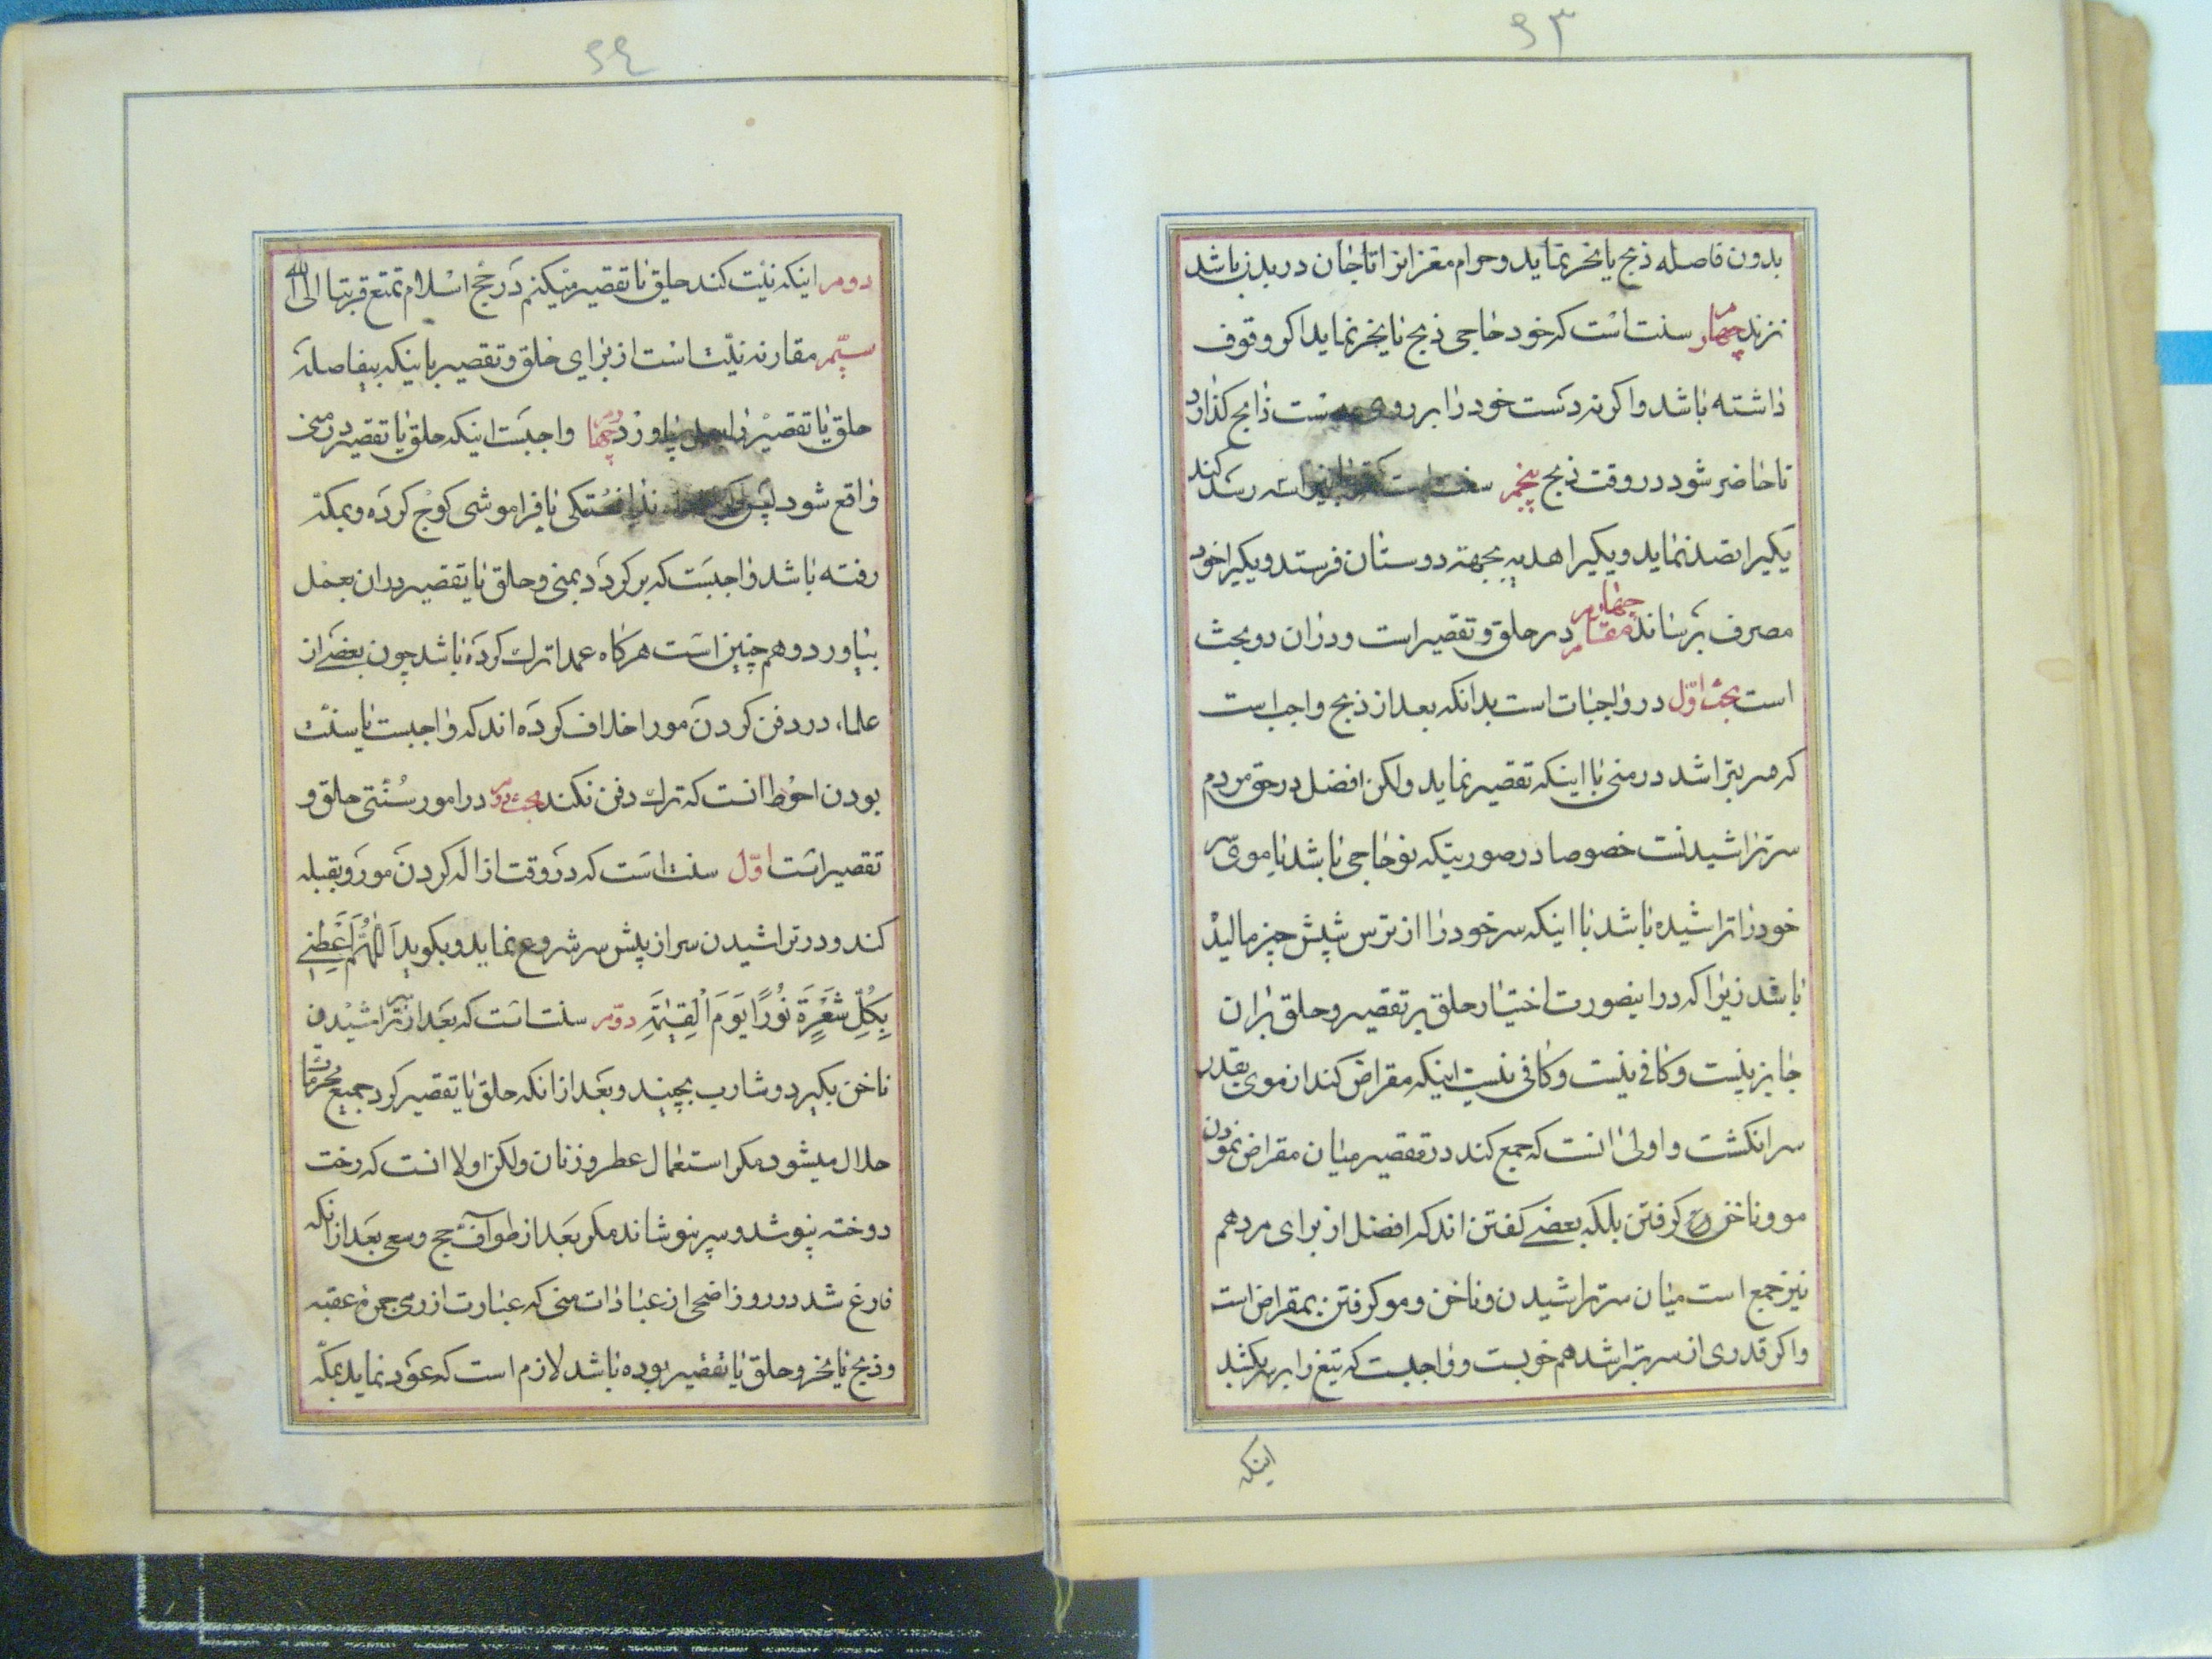 ۹۳
بدون فاصله ذبح یا نحر نماید و حرام مغز انرا تا جان در بدن باشد
نزند چهارم سنت است که خود حاجی ذبح یا نحر نماید اکر وقوف
داشته باشد و اکر نه دست خود را بر روی دست ذابح کذارد
تا حاضر شود در وقت ذبح پنجم سنت است رسد کند
یکیرا تصدق نماید و یکیرا هدیه بجهة دوستان فرستد و یکیرا خود
مصرف برساند مقام چهارم در حلق و تقصیر است و در ان دو بحث
است بحث اول در واجبات است بدانکه بعد از ذبح واجب است
که سر بتراشد در منی یا اینکه تقصیر نماید ولکن افضل در حق مردم
سر تراشیدنست خصوصا در صورتیکه نو حاجی باشد یا موی سر
خود را تراشیده باشد یا اینکه سر خود را از ترس شپش چیز مالید
باشد زیرا که در اینصورت اختیار حلق بر تقصیر و حلق بر ان
جایز نیست و کافی نیست و کافی نیست اینکه مقراض کند از موی بقدر
سر انکشت و اولی انست که جمع کند در تقصیر میان مقراض نمودن
مو و ناخن کرفتن بلکه بعضی کفتن اند که افضل از برای مرد هم
نیز جمع است میان سر تراشیدن و ناخن و مو کرفتن بمقراض است
و اکر قدری از سر بتراشد هم خوبست و واجبست که تیغ را بر سر بکشد
اینکه
۹٤
دوم اینکه نیت کند حلق یا تقصیر میکنم در حج اسلام تمتع قربتا الی الله
سیم مقارنه نیت است از برای حلق و تقصیر باینکه بیفاصله
حلق یا تقصیر را بعمل بیاورد چهارم واجبست اینکه حلق یا تقصیر در منی
واقع شود پس ندانستکی یا فراموشی کوچ کرده و بمکه
رفته باشد واجبست که بر کردد بمنی و حلق یا تقصیر در ان بعمل
بیاورد و هم چنین است هر کاه عمدا ترک کرده باشد چون بعضی از
علماء در دفن کردن مو را خلاف کرده اند که واجبست یا سنت
بودن احوط انست که ترک دفن نکند بحث دوم در امور سنتی حلق و
تقصیر است اول سنت است که در وقت ازاله کردن مو رو بقبله
کند و در تراشیدن سر از پیش سر شروع نماید و بکوید اَللّٰهُمَّ اَعْطِنِی
بِکُلِّ شَعْرَةٍ نُورًا یَوَمَ الْقِیٰمَةِ دوم سنت است که بعد از سر تراشیدن
ناخن بکیرد و شارب بچیند و بعد از انکه حلق یا تقصیر کرد جمیع محرمات
حلال میشود مکر استعمال عطر و زنان ولکن اولا انست که رخت
دوخته نپوشد و سر نپوشاند مکر بعد از طواف حج و سعی بعد از انکه
فارغ شد در روز اضحی از عبادات منی که عبارت از رمی جمره عقبه
و ذبح یا نحر و حلق یا تقصیر بوده باشد لازم است که عود نماید بمکه